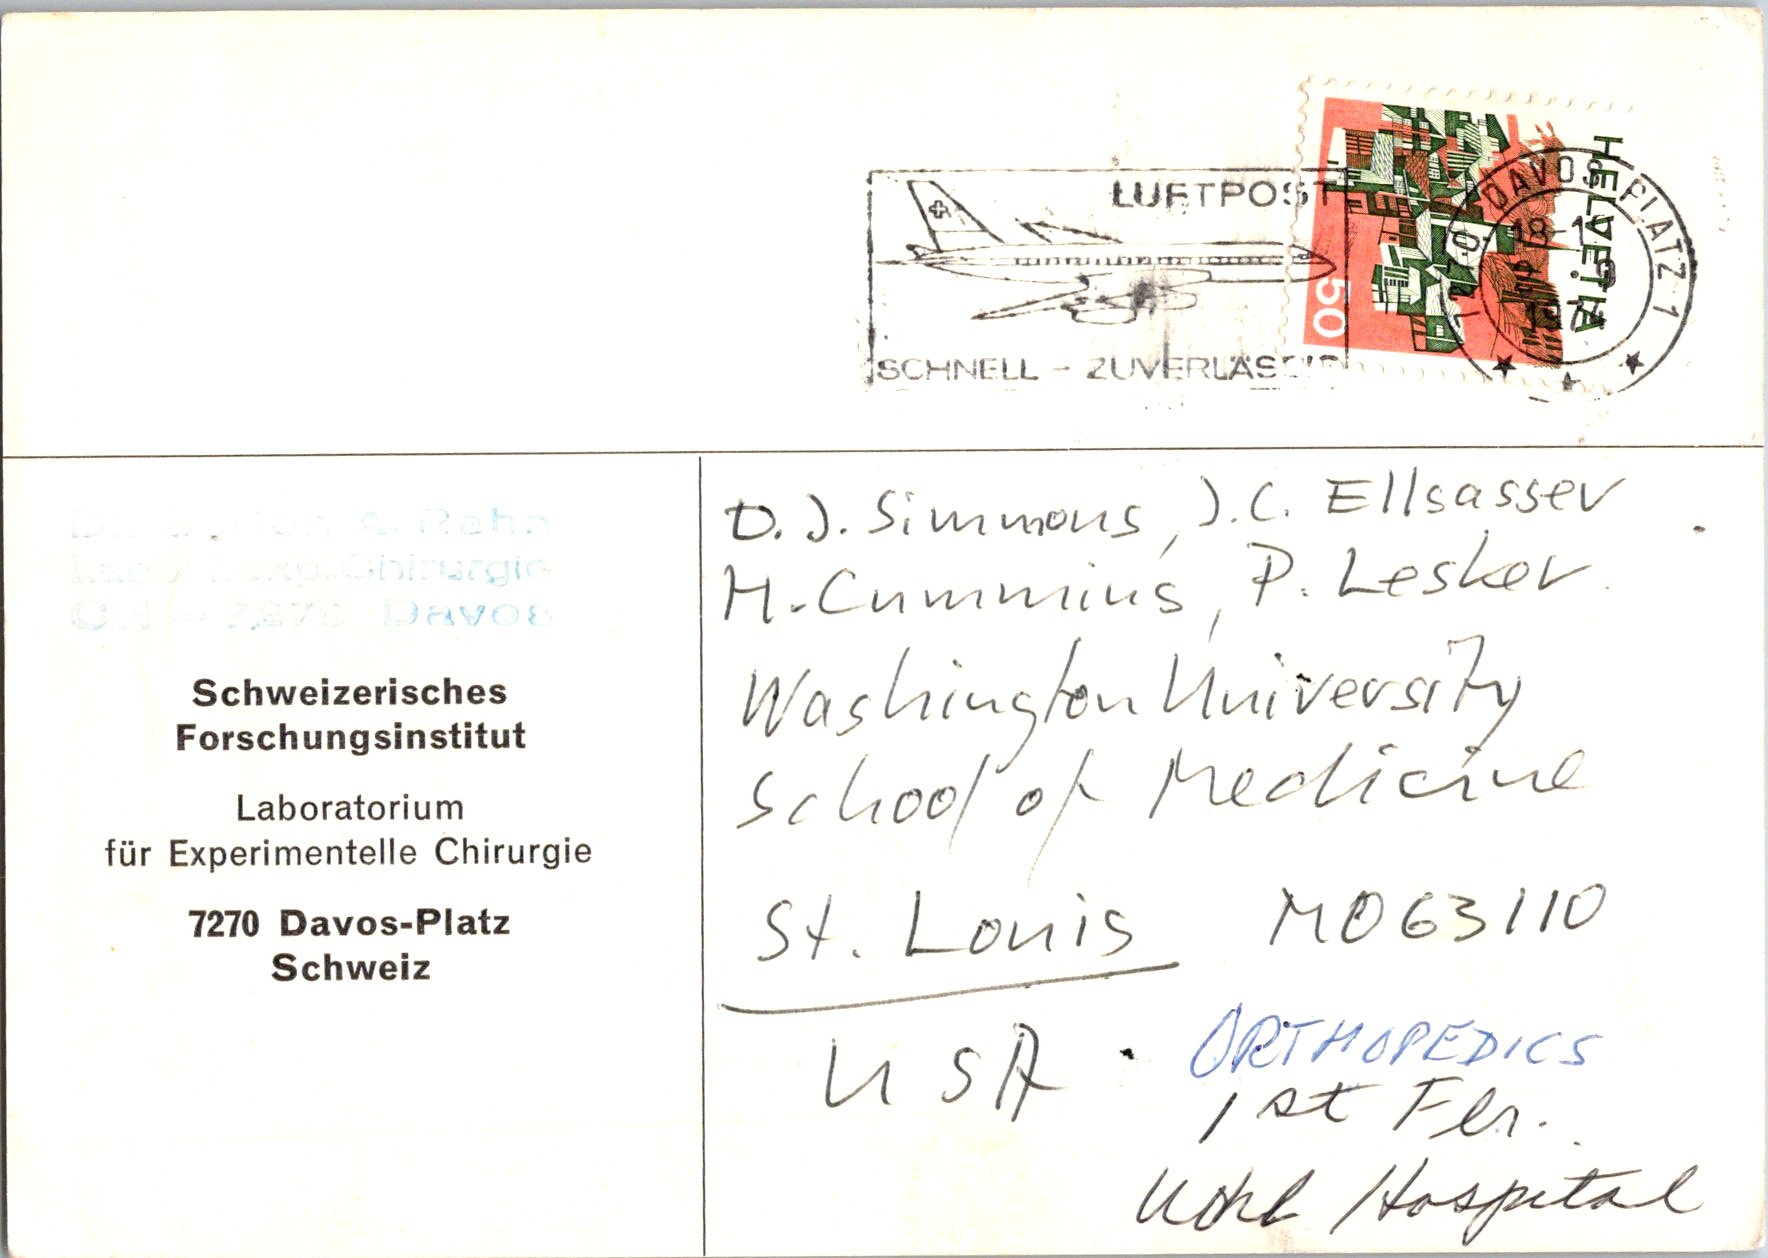 LUFTPOST
SCHNELL - ZUVERLÄSSIG
HELVETIA
50
7270 DAVOS PLATZ 1
18-1
9
197
A. Rahn
Chirurgie
CH - 7270 Davos
Schweizerisches
Forschungsinstitut
Laboratorium
für Experimentelle Chirurgie
7270 Davos-Platz
Schweiz
D.J. Simmons, J.C. Ellsasser
H. Cummins, P. Lesker
Washington University
School of Medicine
St. Louis MO 63110
USA
ORTHOPEDICS
1st Flr.
Hospital